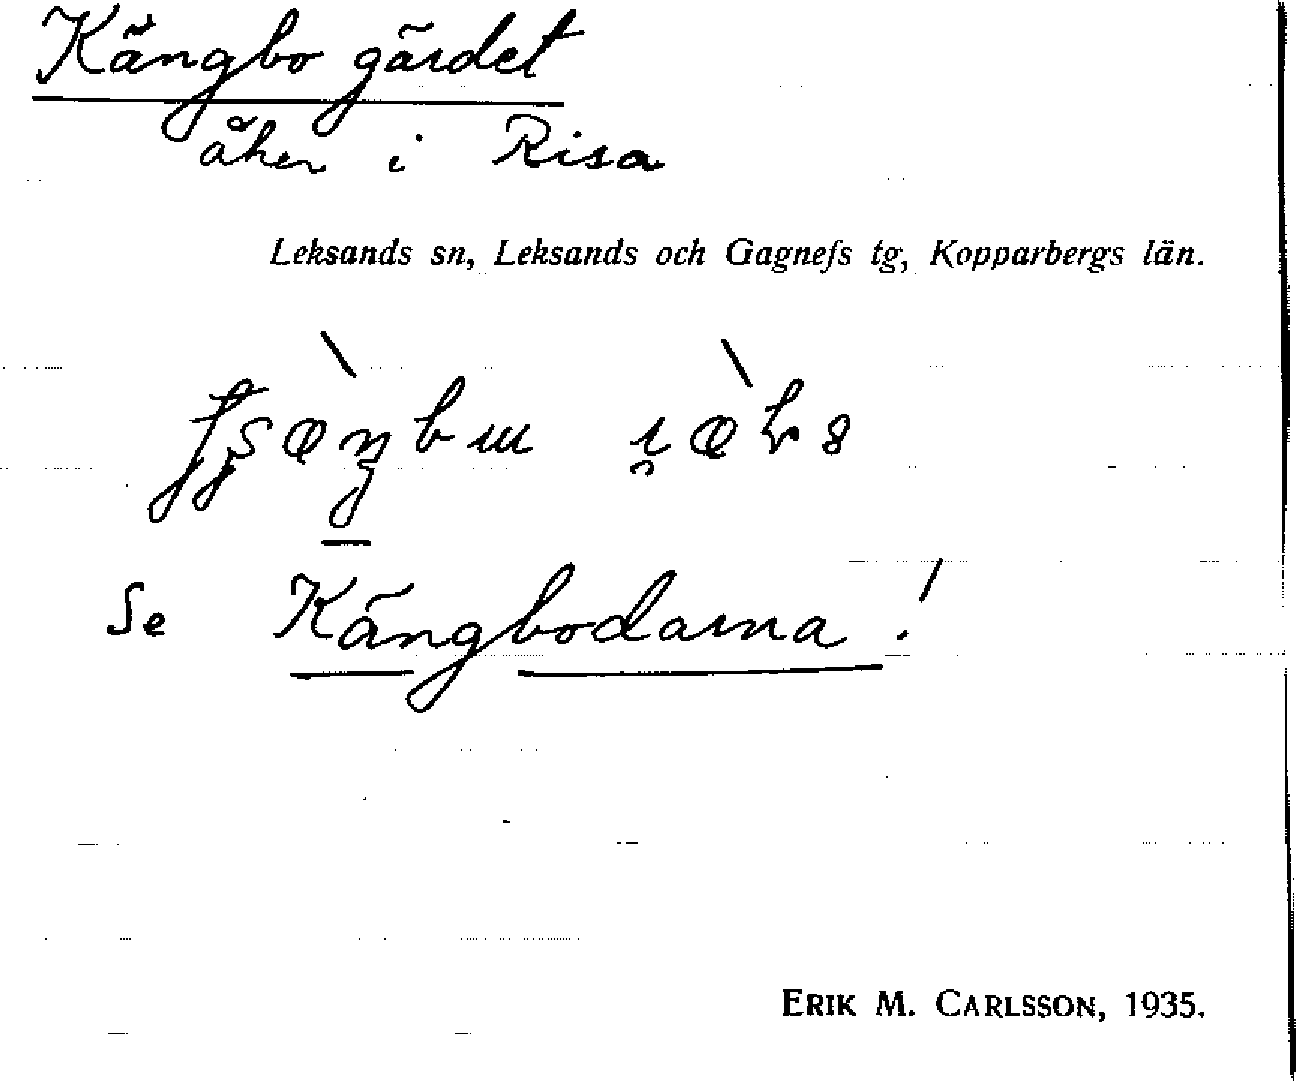 Kängbo gärdet
åker i Risa
Leksands sn, Leksands och Gagnefs tg, Kopparbergs län.
Se Kängbodarna!
ERIK M. CARLSSON, 1935.